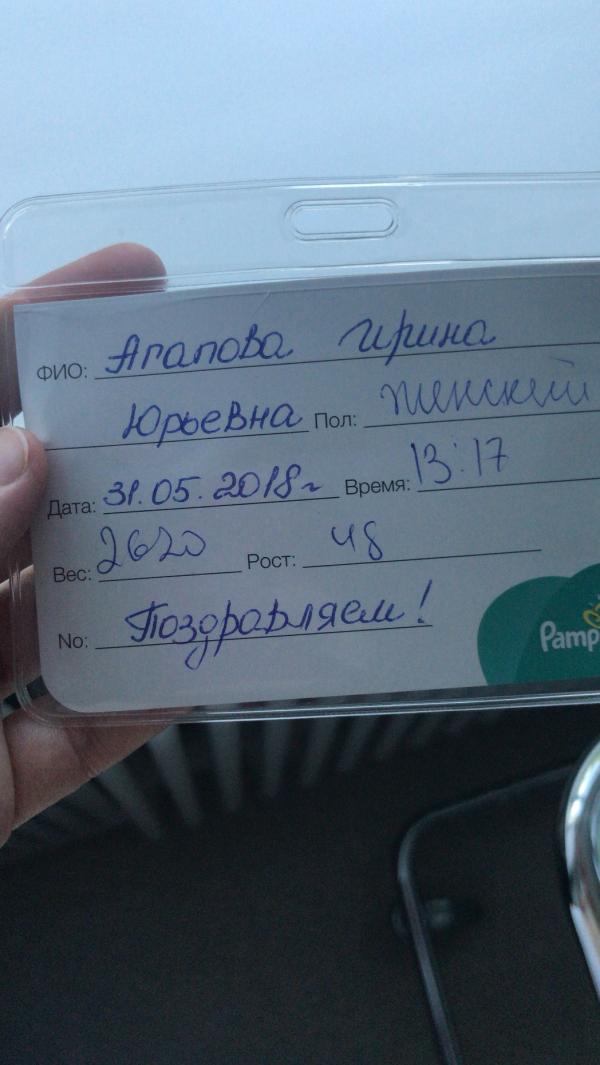 ФИО: Агапова Ирина
Юрьевна Пол: женский
Дата: 31.05.2018г Время: 13:17
Вес: 2620 Рост: 48
No: Поздравляем!
Pamp